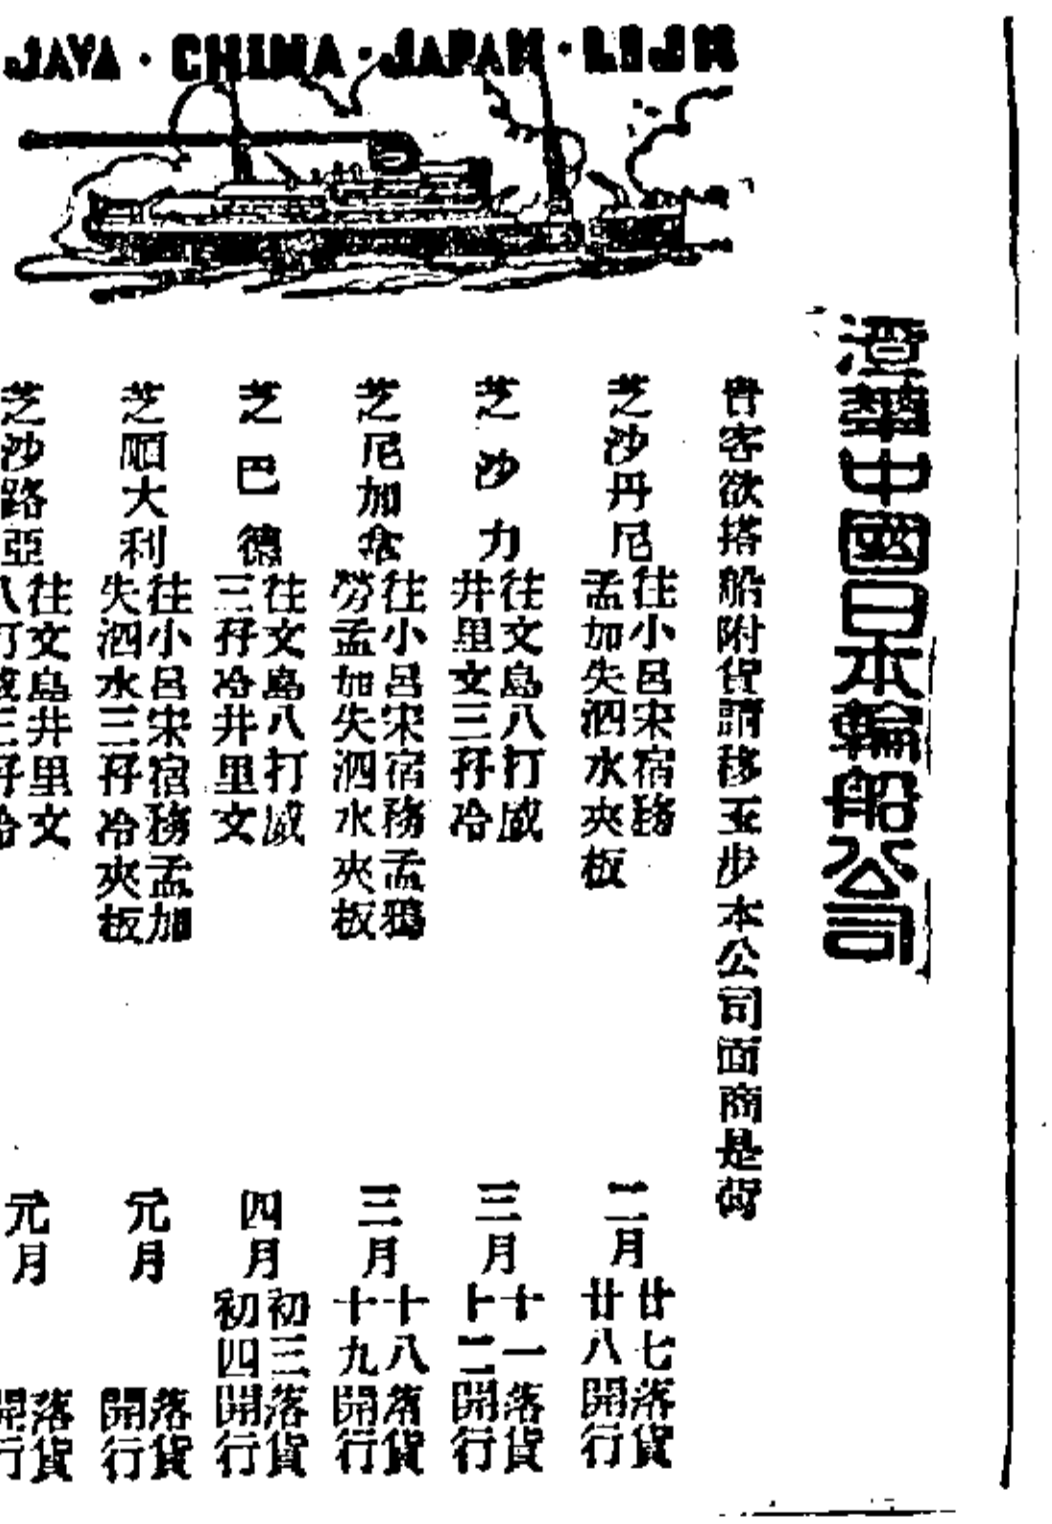 JAVA · CHINA · JAPAN · LIJN
渣華中國日本輪船公司
貴客欲搭船附貨請移玉步本公司面商是荷
芝沙丹尼
往小呂宋宿務
孟加失泗水夾板
二月
廿七落貨
廿八開行
芝沙力
往文島八打威
井里文三孖冷
三月
十一落貨
十二開行
芝尼加拿
往小呂宋宿務孟鴉
勞孟加失泗水夾板
三月
十八落貨
十九開行
芝巴德
往文島八打威
三孖冷井里文
四月
初三落貨
初四開行
芝順大利
往小呂宋宿務孟加
失泗水三孖冷夾板
元月
落貨
開行
芝沙路亞
往文島井里文
八打威三孖冷
元月
落貨
開行